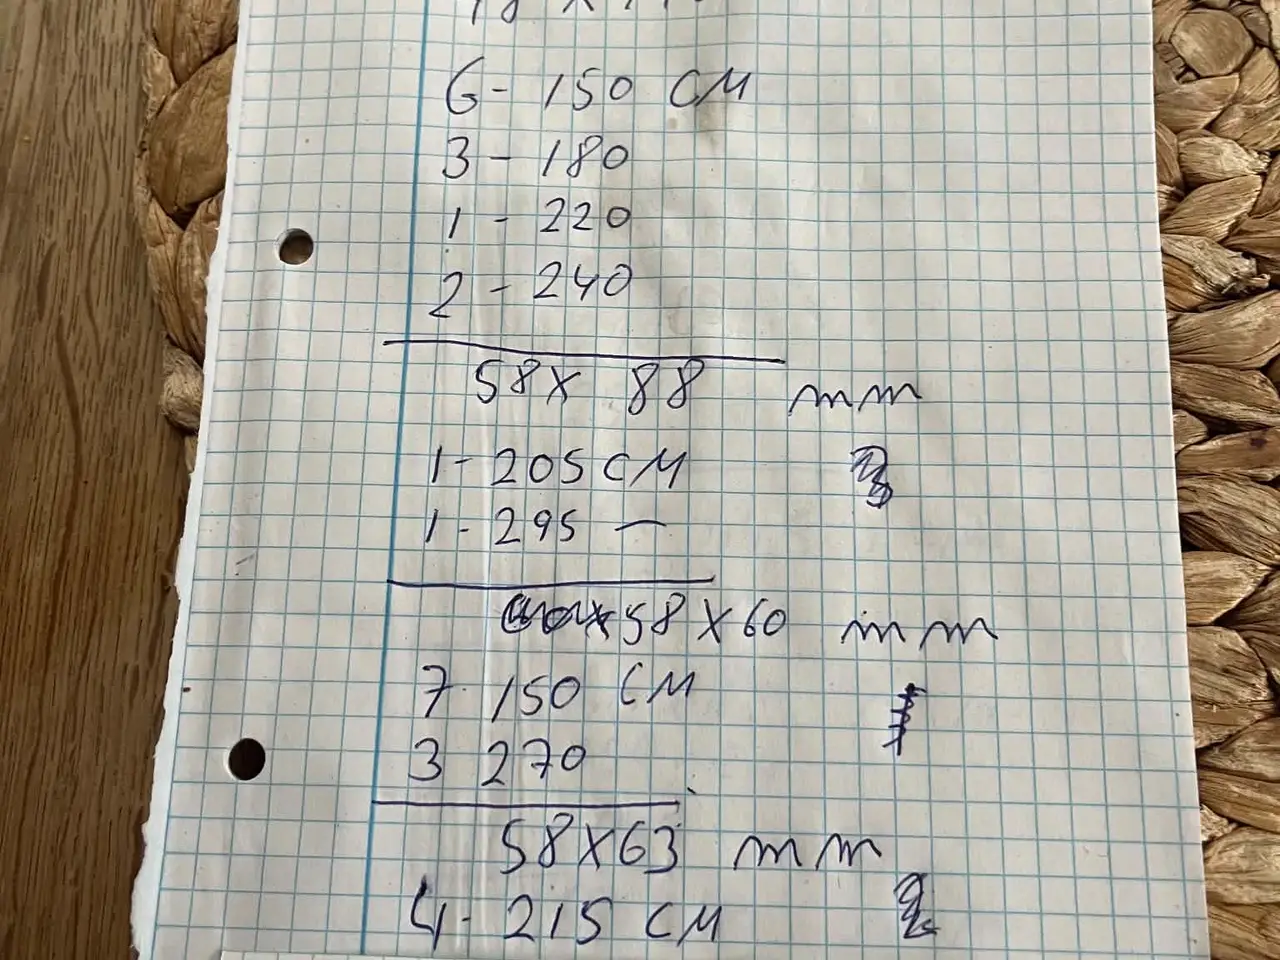 6 - 150 CM
3 - 180
1 - 220
2 - 240
58 x 88 mm
1 - 205 CM
1 - 295 —
58 x 60 mm
7 150 CM
3 270
58 x 63 mm
4 - 215 CM